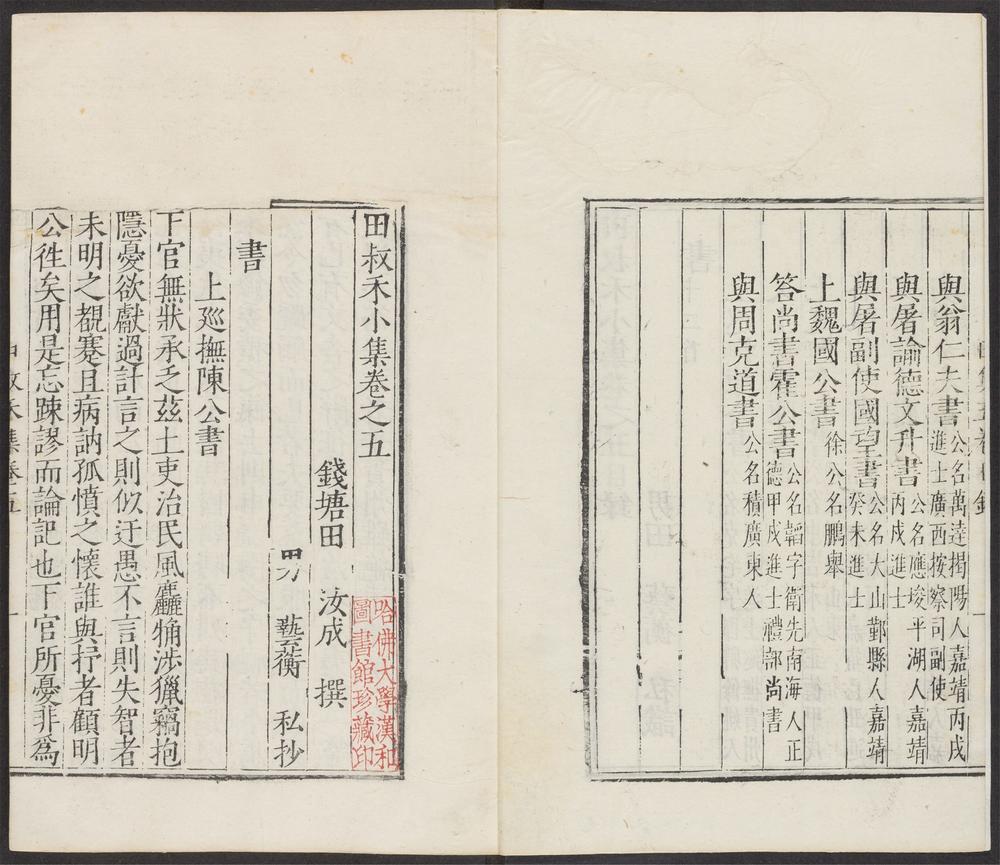 與翁仁夫書 公名萬達揭陽人嘉靖丙戌
進士廣西按察司副使
與屠諭德文升書 公名應埈平湖人嘉靖
丙戌進士
與屠副使國望書 公名大山鄞縣人嘉靖
癸未進士
上魏國公書 徐公名鵬舉
答尚書霍公書 公名韜字衛先南海人正
德甲戌進士禮部尚書
與周克道書 公名積廣東人
田叔禾小集卷之五
錢塘田 汝成 撰
男 藝蘅 私抄
哈佛大學漢和
圖書館珍藏印
書
上廵撫陳公書
下官無狀承乏茲土吏治民風麤觕涉獵竊抱
隱憂欲獻過計言之則似迂愚不言則失智者
未明之覩蹇且病訥孤憤之懷誰與抒者顧明
公徃矣用是忘踈謬而論記也下官所憂非為